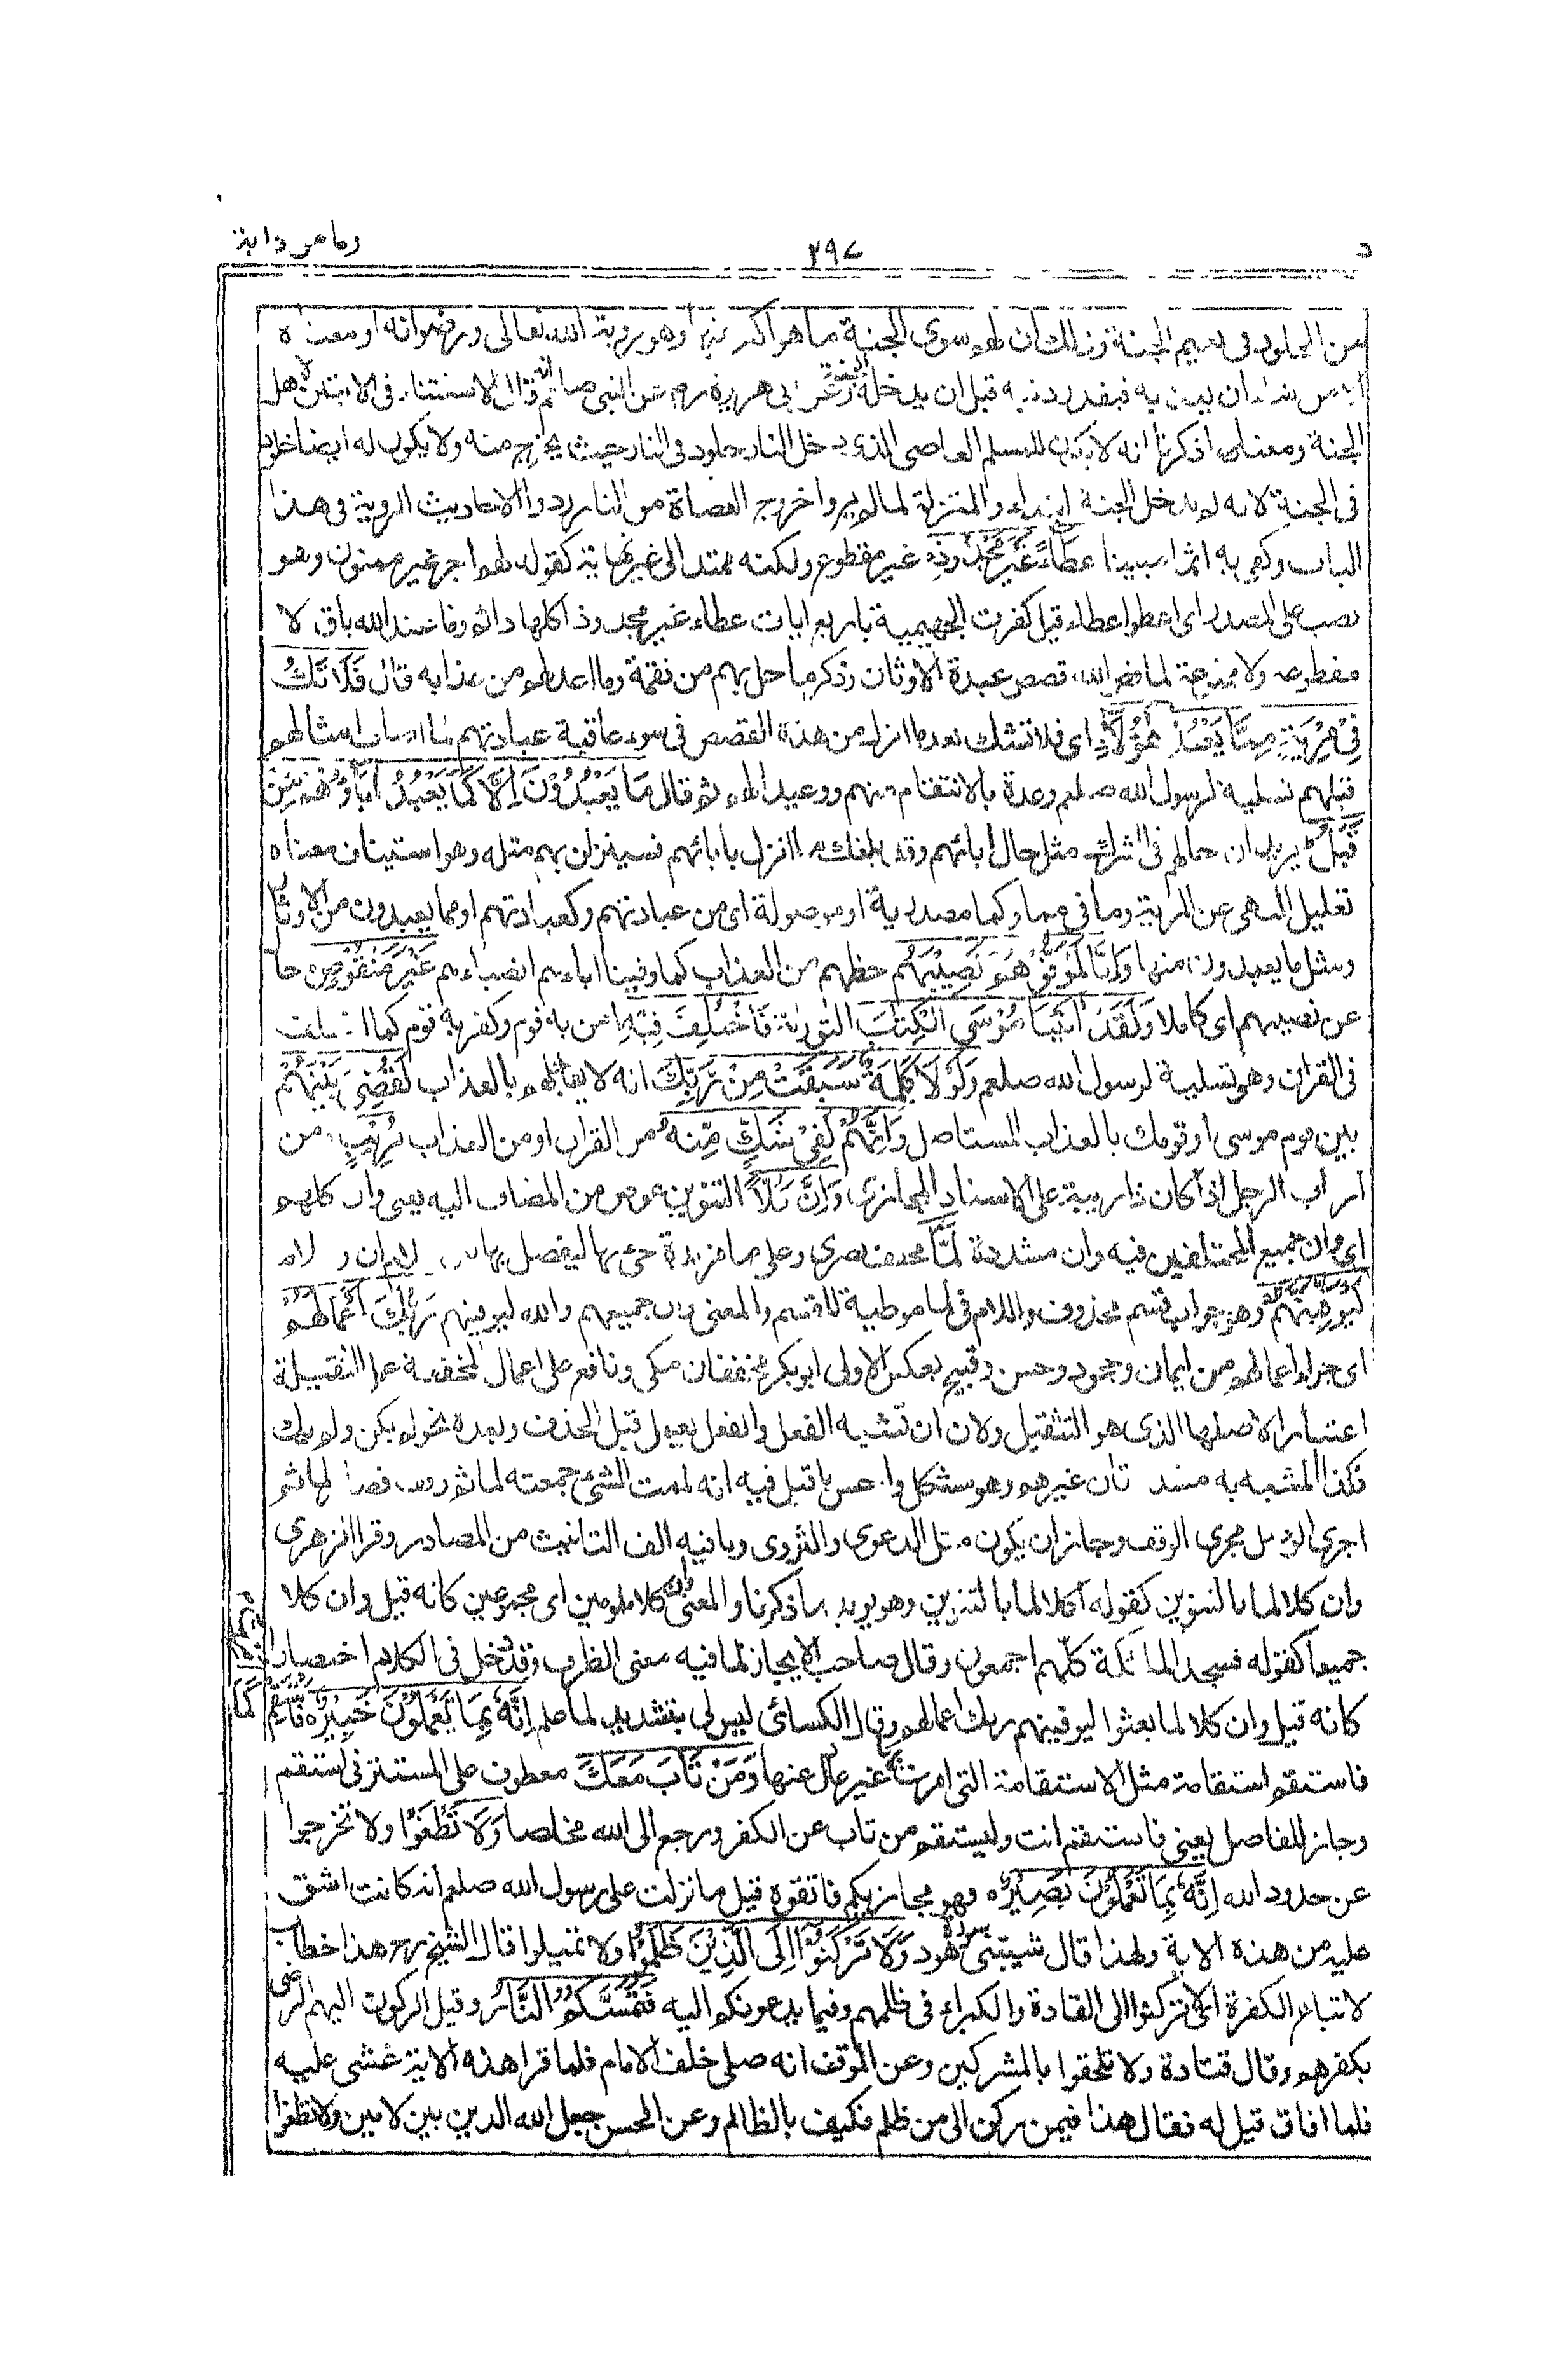 وما من دابة
٢٩٧
د
من الخلود فى نعيم الجنة وذلك ان لهم سوى الجنة ما هو اكبر منها وهو روية الله تعالى ورضوانه او معناه
الا من شاء ان يعذبه بقدر ذنبه قبل ان يدخله الجنة وعن ابى هريرة رض عن النبى صلعم انه قال الاستثناء فى الايتين لاهل
الجنة ومعناه ما ذكرنا انه لا يكون للمسلم العاصى الذى دخل النار خلود فى النار حيث يخرج منه ولا يكون له ايضا خلود
فى الجنة لانه لم يدخل الجنة ابتداء والمعتزلة لما لم يروا خروج العصاة من النار ردوا الاحاديث المروية فى هذا
الباب وكفى به اثما مبينا عَطَاءً غَيْرَ مَجْذُوذٍ غير مقطوع ولكنه ممتد الى غير نهاية كقوله لهم اجر غير ممنون وهو
نصب على المصدر اى اعطوا عطاء قيل كفرت الجهمية باربع ايات عطاء غير مجذوذ اكلها دائم وما عند الله باق لا
مقطوعة ولا ممنوعة لما قص الله قصص عبدة الاوثان وذكر ما حل بهم من نقمة وما اعد لهم من عذابه قال فَلَا تَكُ
فِىْ مِرْيَةٍ مِمَّا يَعْبُدُ هٰؤُلَآءِ اى فلا تشك بعد ما انزل من هذه القصص فى سوء عاقبة عبادتهم لما اصاب امثالهم
قبلهم تسلية لرسول الله صلعم وعدة بالانتقام منهم ووعيدا لهم ثم قال مَا يَعْبُدُوْنَ اِلَّا كَمَا يَعْبُدُ اٰبَاؤُهُمْ مِّنْ
قَبْلُ يريد ان حالهم فى الشرك مثل حال ابائهم وقد بلغك ما انزل بابائهم فسينزلن بهم مثله وهو استيناف معناه
تعليل النهى عن المرية وما فى مما وكما مصدرية او موصولة اى من عبادتهم وكعبادتهم او مما يعبدون من الاوثان
ومثل ما يعبدون منها وَاِنَّا لَمُوَفُّوْهُمْ نَصِيْبَهُمْ حظهم من العذاب كما وفينا اباءهم انصباءهم غَيْرَ مَنْقُوْصٍ حال
عن نصيبهم اى كاملا وَلَقَدْ اٰتَيْنَا مُوْسَى الْكِتٰبَ التورىة فَاخْتُلِفَ فِيْهِ امن به قوم وكفر به قوم كما اختلف
فى القران وهو تسلية لرسول الله صلعم وَلَوْلَا كَلِمَةٌ سَبَقَتْ مِنْ رَّبِّكَ انه لا يعاجلهم بالعذاب لَقُضِىَ بَيْنَهُمْ
بين قوم موسى او قومك بالعذاب المستاصل وَاِنَّهُمْ لَفِىْ شَكٍّ مِّنْهُ من القران او من العذاب مُرِيْبٍ من
اراب الرجل اذا كان ذا ريبة على الاسناد المجازى وَاِنَّ كُلًّا التنوين عوض من المضاف اليه يعنى وان كلهم
اى وان جميع المختلفين فيه وان مشددة لَّمَّا مخفف بصرى وعلى ما مزيدة جىء بها ليفصل بها بين لام ان و لام
لَيُوَفِّيَنَّهُمْ وهو جواب قسم محذوف واللام فى لما موطية للقسم والمعنى وان جميعهم والله ليوفينهم رَبُّكَ اَعْمَالَهُمْ
اى جزاء اعمالهم من ايمان وجحود وحسن وقبيح بعكس الاولى ابوبكر مخففان مكى ونافع على اعمال المخففة عمل الثقيلة
اعتبارا لاصلها الذى هو التثقيل ولان ان تشبه الفعل والفعل يعمل قبل الحذف وبعده نحو لم يكن ولم يك
فكذا المشبه به مشددتان غيرهم وهو مشكل واحسن ما قيل فيه انه لممت الشئ جمعته لما ثم وقف فصار لما ثم
اجرى الوصل مجرى الوقف وجاز ان يكون مثل الدعوى والثروى وما فيه الف التانيث من المصادر وقرا الزهرى
وان كلا لما بالتنوين كقوله اكلا لما بالتنوين وهو يويد ما ذكرنا والمعنى وان كلا ملمومين اى مجموعين كانه قيل وان كلا
جميعا كقوله فسجد الملائكة كلهم اجمعون وقال صاحب الايجاز لما فيه معنى الظرف وقد دخل فى الكلام اختصارا
كانه قيل وان كلا لما بعثوا ليوفينهم ربك اعمالهم وقال الكسائى ليس لى بتشديد لما علم اِنَّهٗ بِمَا يَعْمَلُوْنَ خَبِيْرٌ فَاسْتَقِمْ كَمَا
فاستقم استقامة مثل الاستقامة التى امرت بها غير عادل عنها وَمَنْ تَابَ مَعَكَ معطوف على المستتر فى استقم
وجاز للفاصل يعنى فاستقم انت وليستقم من تاب عن الكفر ورجع الى الله مخلصا وَلَا تَطْغَوْا ولا تخرجوا
عن حدود الله اِنَّهٗ بِمَا تَعْمَلُوْنَ بَصِيْرٌ فهو مجازيكم فاتقوه قيل ما نزلت على رسول الله صلعم اية كانت اشق
عليه من هذه الاية ولهذا قال شيبتنى سورة هود وَلَا تَرْكَنُوْا اِلَى الَّذِيْنَ ظَلَمُوْا ولا تميلوا قال الشيخ رح هذا خطاب
لاتباع الكفرة اى لا تركنوا الى القادة والكبراء فى ظلمهم وفيما يدعونكم اليه فَتَمَسَّكُمُ النَّارُ وقيل الركون اليهم الرضى
بكفرهم وقال قتادة ولا تلحقوا بالمشركين وعن الموفق انه صلى خلف الامام فلما قرا هذه الاية غشى عليه
فلما افاق قيل له فقال هذا فيمن ركن الى من ظلم فكيف بالظالم وعن الحسن جعل الله الدين بين لائين ولا تطغوا